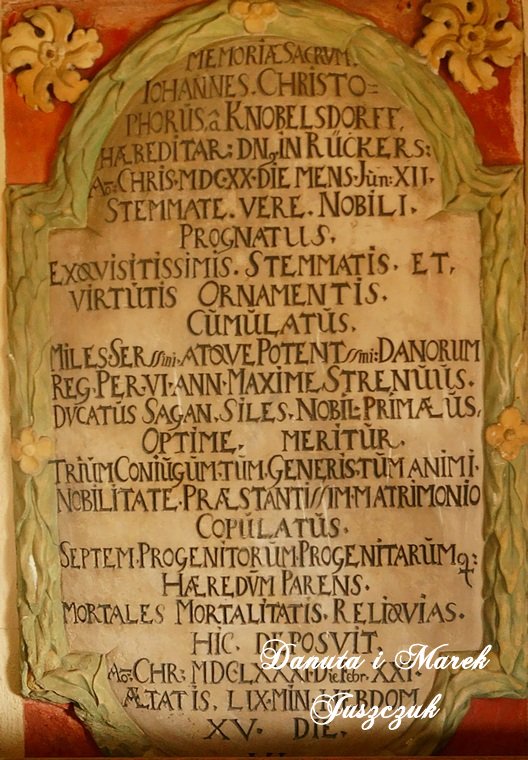 MEMORIÆ SACRVM.
IOHANNES. CHRISTO=
PHORŬS. â KNOBELSDORFF,
HÆREDITAR: DN9, IN RŰCKERS:
Ao: CHRIS. MDCXX. DIE MENS. Jŭn: XII.
STEMMATE. VERE. NOBILI.
PROGNATUS.
EXQVISITISSIMIS. STEMMATIS. ET,
VIRTŬTIS ORNAMENTIS.
CŬMŬLATŬS.
MILES. SERssimi. ATQVE POTENTssimi: DANORUM
REG. PER. VI. ANN. MAXIME. STRENŬŬS.
DVCATŬS SAGAN. SILES. NOBIL: PRIMÆŬS.
OPTIME. MERITŬR.
TRIŬM CONIŬGŬM. TŬM. GENERIS. TŬM ANIMI.
NOBILITATE. PRÆSTANTIssIM. MATRIMONIO
COPŬLATŬS.
SEPTEM. PROGENITORŬM. PROGENITARŬM q:
HÆREDVM PARENS.
MORTALES MORTALITATIS. RELIQVIAS.
HIC. DEPOSVIT.
Ao: CHR: MDCLXXX Die Febr. XXI
ÆTATIS. LIX. MIN. HEBDOM.
XV. DIE.
Danuta i Marek
Juszczuk